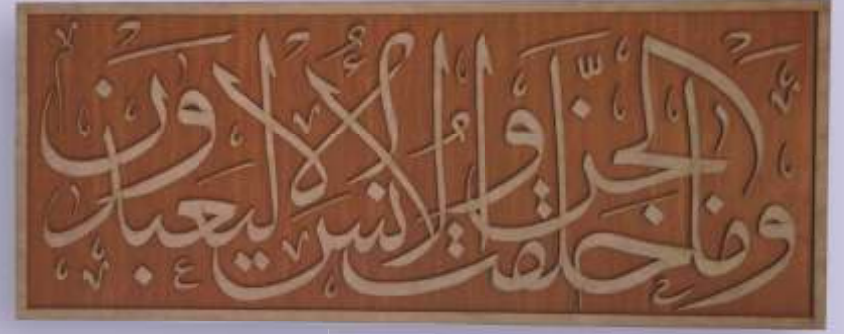 وما خلقت الجن والإنس إلا ليعبدون